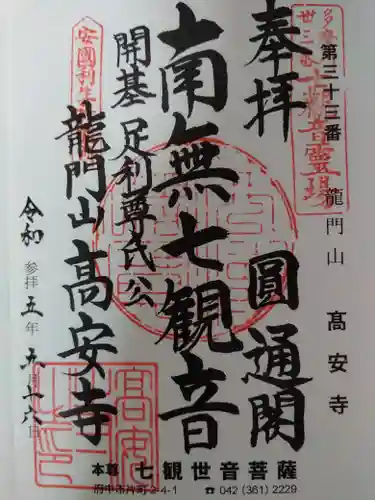 第三十三番 龍門山 髙安寺
奉拝
圓通閣
南無七観音
開基 足利尊氏公
龍門山 髙安寺
令和 参拝 五年 五月 十八日
本尊 七観世音菩薩
府中市片町2-4-1 ☎042(361)2229